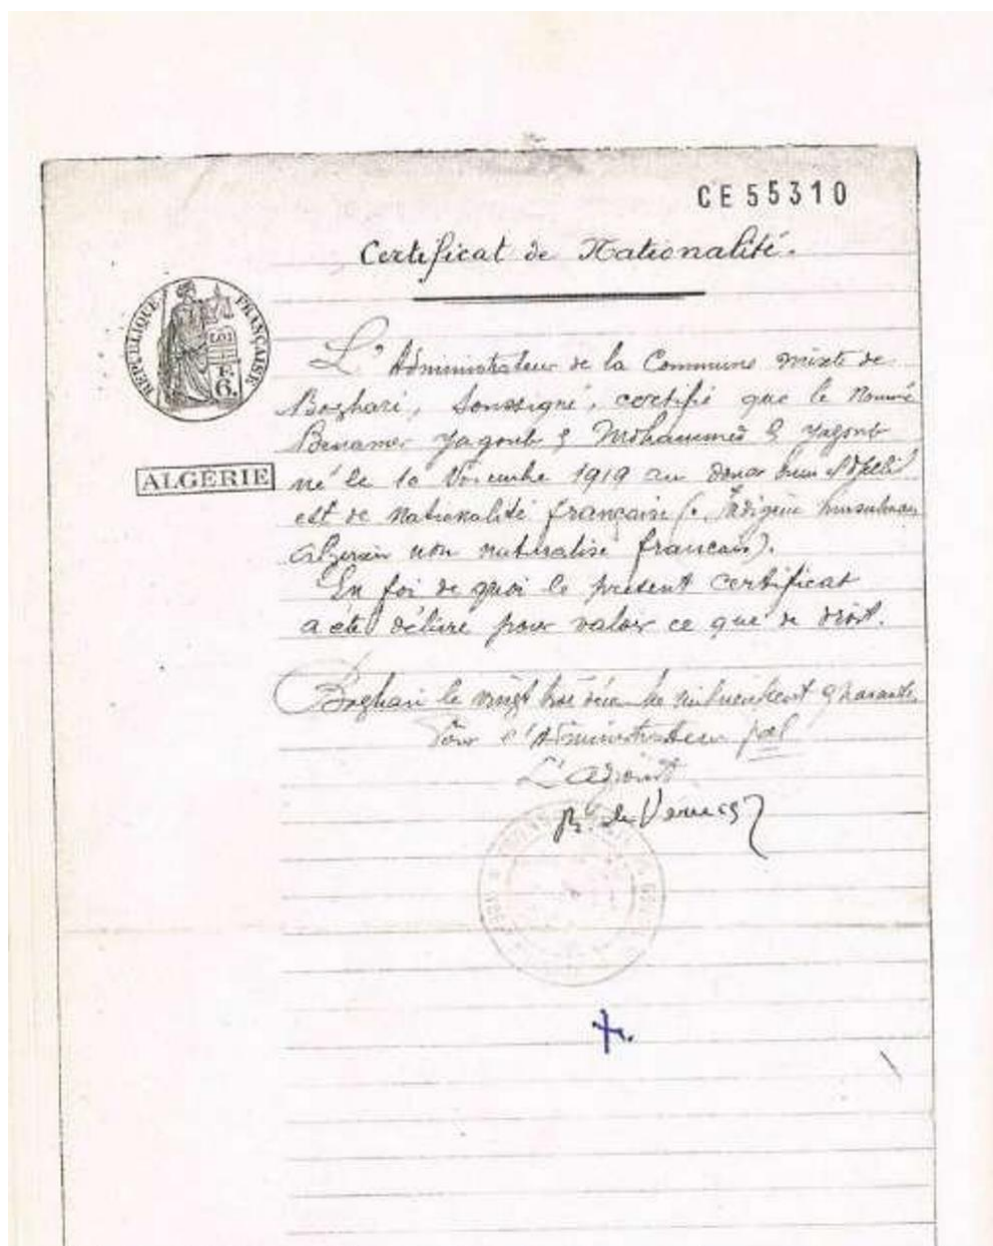 CE 55310
Certificat de Nationalité.
RÉPUBLIQUE FRANÇAISE
6.
L'Administrateur de la Commune mixte de
Boghari, Soussigné, certifie que le Nommé
Benamer Yagoub Mohammed Yagoub
ALGÉRIE
né le 10 Novembre 1919 au douar
est de nationalité française (Indigène musulman
Algérien non naturalisé français).
En foi de quoi le présent certificat
a été délivré pour valoir ce que de droit.
Boghari le vingt quarante
Pour l'Administrateur pal
L'adjoint